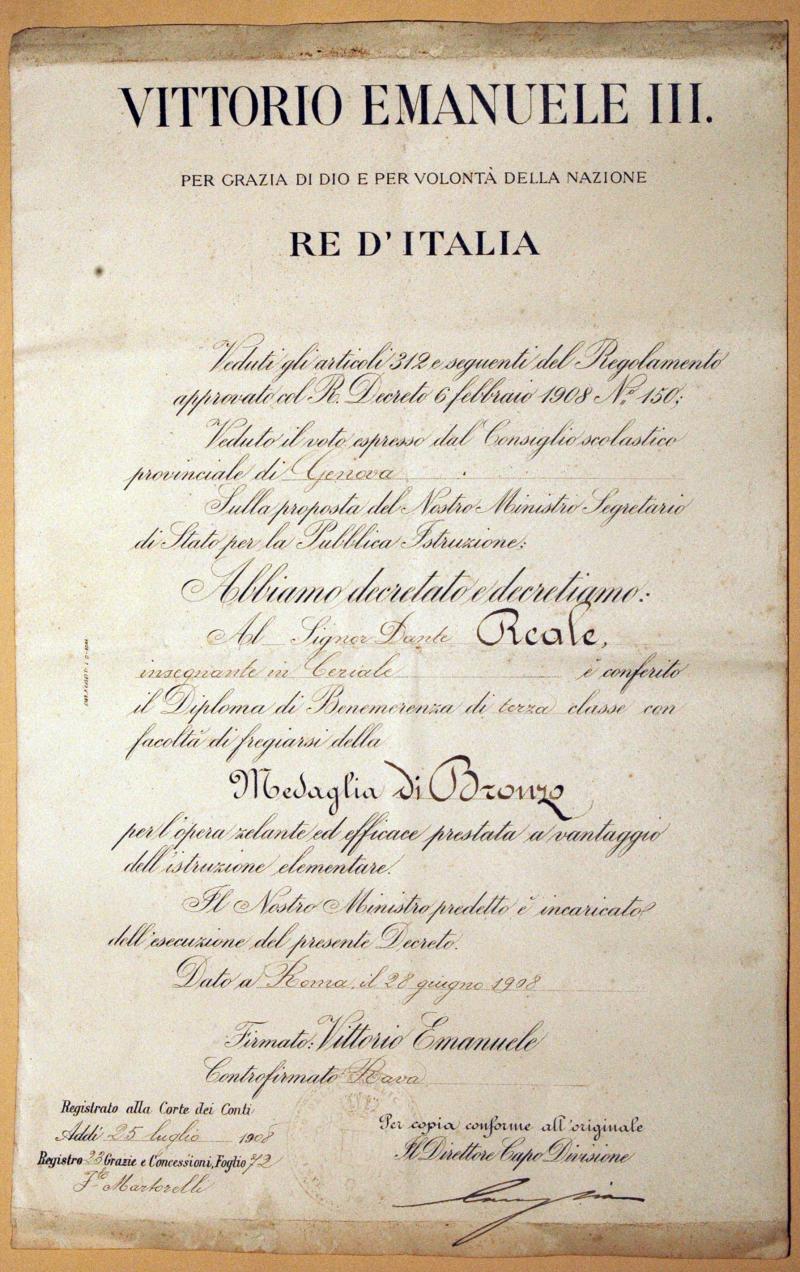 VITTORIO EMANUELE III.
PER GRAZIA DI DIO E PER VOLONTÀ DELLA NAZIONE
RE D'ITALIA
Veduti gli articoli 312 e seguenti del Regolamento
approvato col R. Decreto 6 febbraio 1908 N.º 150;
Veduto il voto espresso dal Consiglio scolastico
provinciale di Genova
Sulla proposta del Nostro Ministro Segretario
di Stato per la Pubblica Istruzione:
Abbiamo decretato e decretiamo:
Al Signor Dante Reale,
insegnante in Ceriale è conferito
il Diploma di Benemerenza di terza classe con
facoltà di fregiarsi della
Medaglia di Bronzo
per l'opera zelante ed efficace prestata a vantaggio
dell'istruzione elementare.
Il Nostro Ministro predetto è incaricato
dell'esecuzione del presente Decreto.
Dato a Roma, il 28 giugno 1908
Firmato: Vittorio Emanuele
Controfirmato Rava
Registrato alla Corte dei Conti
Addì 25 luglio 1908
Registro 23 Grazie e Concessioni, Foglio 72
F.to Martorelli
Per copia conforme all'originale
Il Direttore Capo Divisione